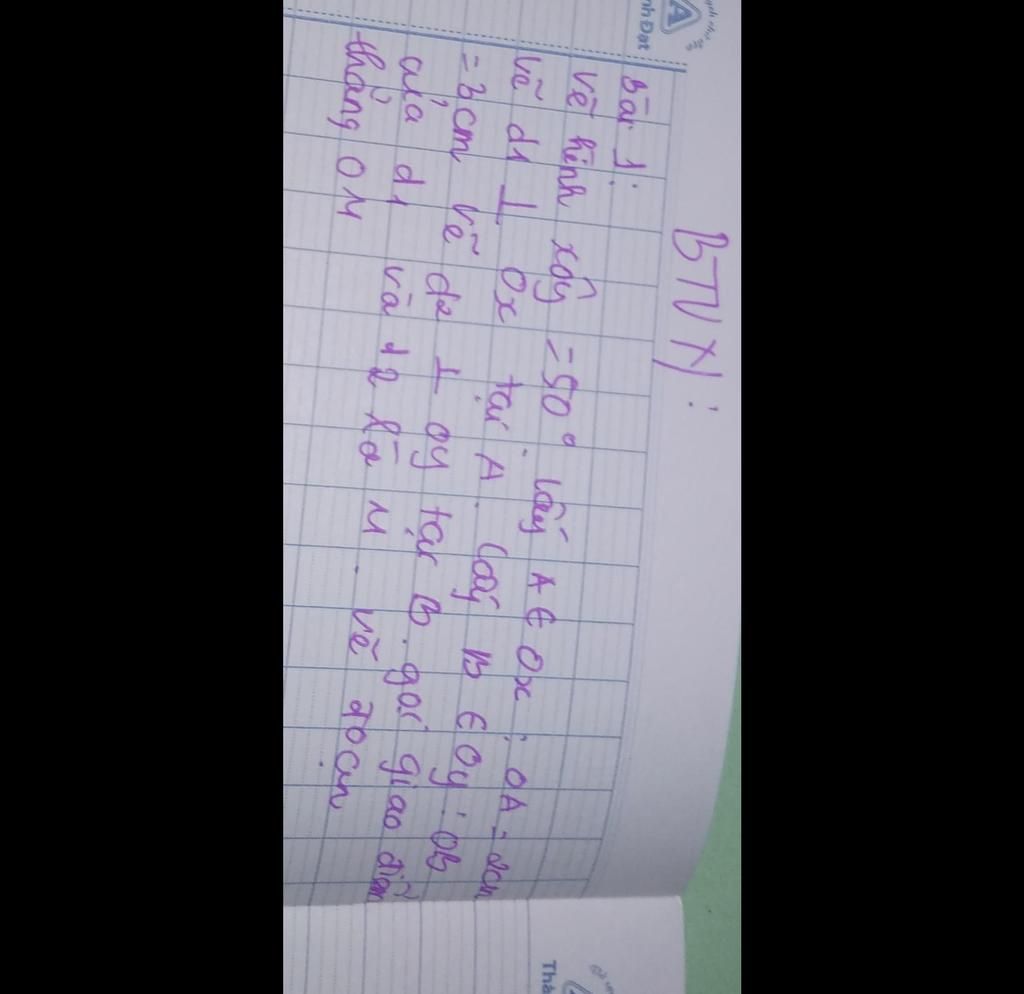 BTVN:
Bài 1:
Vẽ hình xÔy = 50° lấy A ∈ Ox : OA = 2cm
Vẽ d1 ⊥ Ox tại A. Lấy B ∈ Oy : OB
= 3cm vẽ d2 ⊥ Oy tại B. gọi giao điểm
của d1 và d2 là M. vẽ đoạn
thẳng OM
nh Đạt